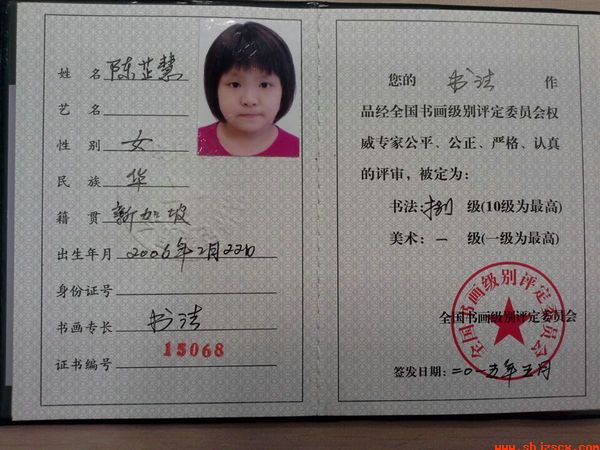 姓 名 陈芷慧
艺 名
性 别 女
民 族 华
籍 贯 新加坡
出生年月 2006年2月22日
身份证号
书画专长 书法
证书编号 15068
您的 书法 作
品经全国书画级别评定委员会权
威专家公平、公正、严格、认真
的评审，被定为：
书法：捌 级(10级为最高)
美术：一 级(一级为最高)
全国书画级别评定委员会
全国书画级别评定委员会
签发日期：二〇一五年五月
www.shjzscx.com